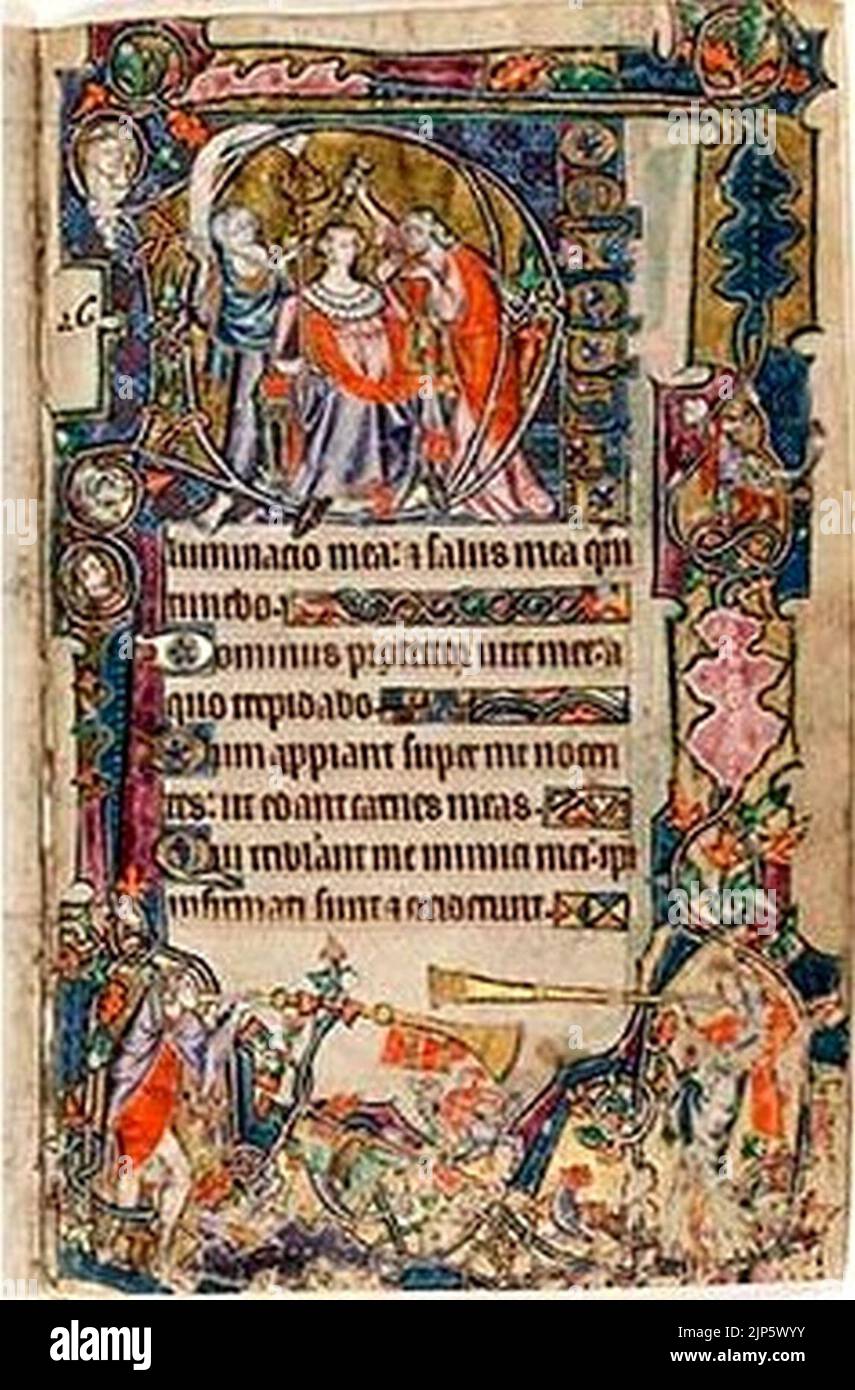 luminatio mea: ⁊ salus mea que
timebo.
Dominus vite mee: a
quo trepidabo.
Dum appiant super me nocen
tes: ut edant carnes meas.
Qui me inimici mei: ipi
infirmati sunt ⁊
alamy
Image ID: 2JP5WYY
www.alamy.com